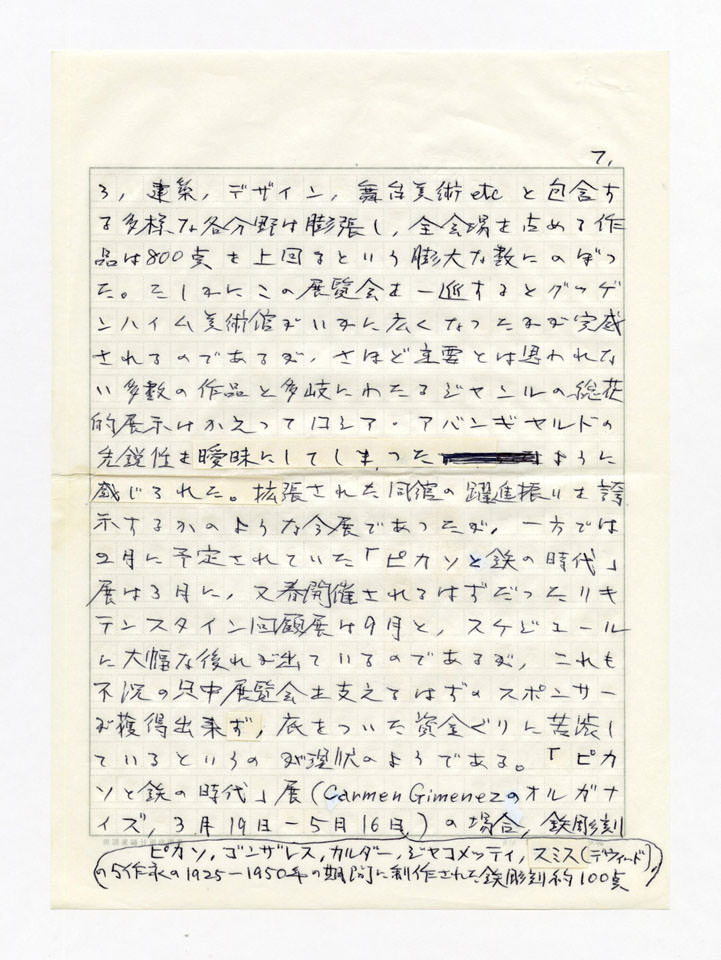 7.
ろ, 建築, デザイン, 舞台美術etcと包含す
る多様な各分野は膨張し, 全会場を占める作
品は800点を上回るという膨大な数にのぼっ
た。たしかにこの展覧会を一巡するとグッゲ
ンハイム美術館がいかに広くなったかが実感
されるのであるが, さほど主要とは思われな
い多数の作品と多岐にわたるジャンルの総花
的展示はかえってロシア・アバンギャルドの
先鋭性を曖昧にしてしまった ように
感じられた。拡張された同館の躍進振りを誇
示するかのような今展であったが, 一方では
2月に予定されていた「ピカソと鉄の時代」
展は3月に, 又春開催されるはずだったリキ
テンスタイン回顧展は9月と, スケジュール
に大幅な後れが出ているのであるが, これも
不況の只中展覧会を支えるはずのスポンサー
が獲得出来ず, 底をついた資金ぐりに苦渋し
ているというのが現状のようである。「ピカ
ソと鉄の時代」展(Carmen Gimenezのオルガナ
イズ, 3月19日-5月16日)の場合, 鉄彫刻
ピカソ, ゴンザレス, カルダー, ジャコメッティ, スミス(デヴィッド)
の5作家の1925-1950年の期間に制作された鉄彫刻約100点